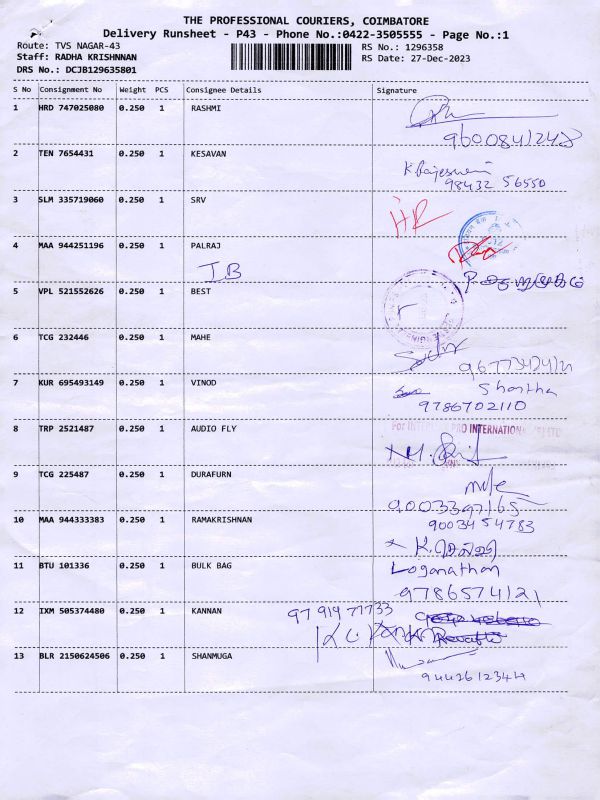 THE PROFESSIONAL COURIERS, COIMBATORE
Delivery Runsheet - P43 - Phone No.:0422-3505555 - Page No.:1
Route: TVS NAGAR-43 RS No.: 1296358
Staff: RADHA KRISHNNAN RS Date: 27-Dec-2023
DRS No.: DCJB129635801
S No Consignment No Weight PCS Consignee Details Signature
1 HRD 747025080 0.250 1 RASHMI
9600841248
2 TEN 7654431 0.250 1 KESAVAN
98432 56550
3 SLM 335719060 0.250 1 SRV
HR
4 MAA 944251196 0.250 1 PALRAJ
IB
5 VPL 521552626 0.250 1 BEST
6 TCG 232446 0.250 1 MAHE
7 KUR 695493149 0.250 1 VINOD Shantha
9786702110
8 TRP 2521487 0.250 1 AUDIO FLY PRO INTERNATIONAL
9 TCG 225487 0.250 1 DURAFURN
9003397165
10 MAA 944333383 0.250 1 RAMAKRISHNAN 9003454783
11 BTU 101336 0.250 1 BULK BAG Loganathan
9786574121
12 IXM 505374480 0.250 1 KANNAN 97 919 77733
13 BLR 2150624506 0.250 1 SHANMUGA
9442612344